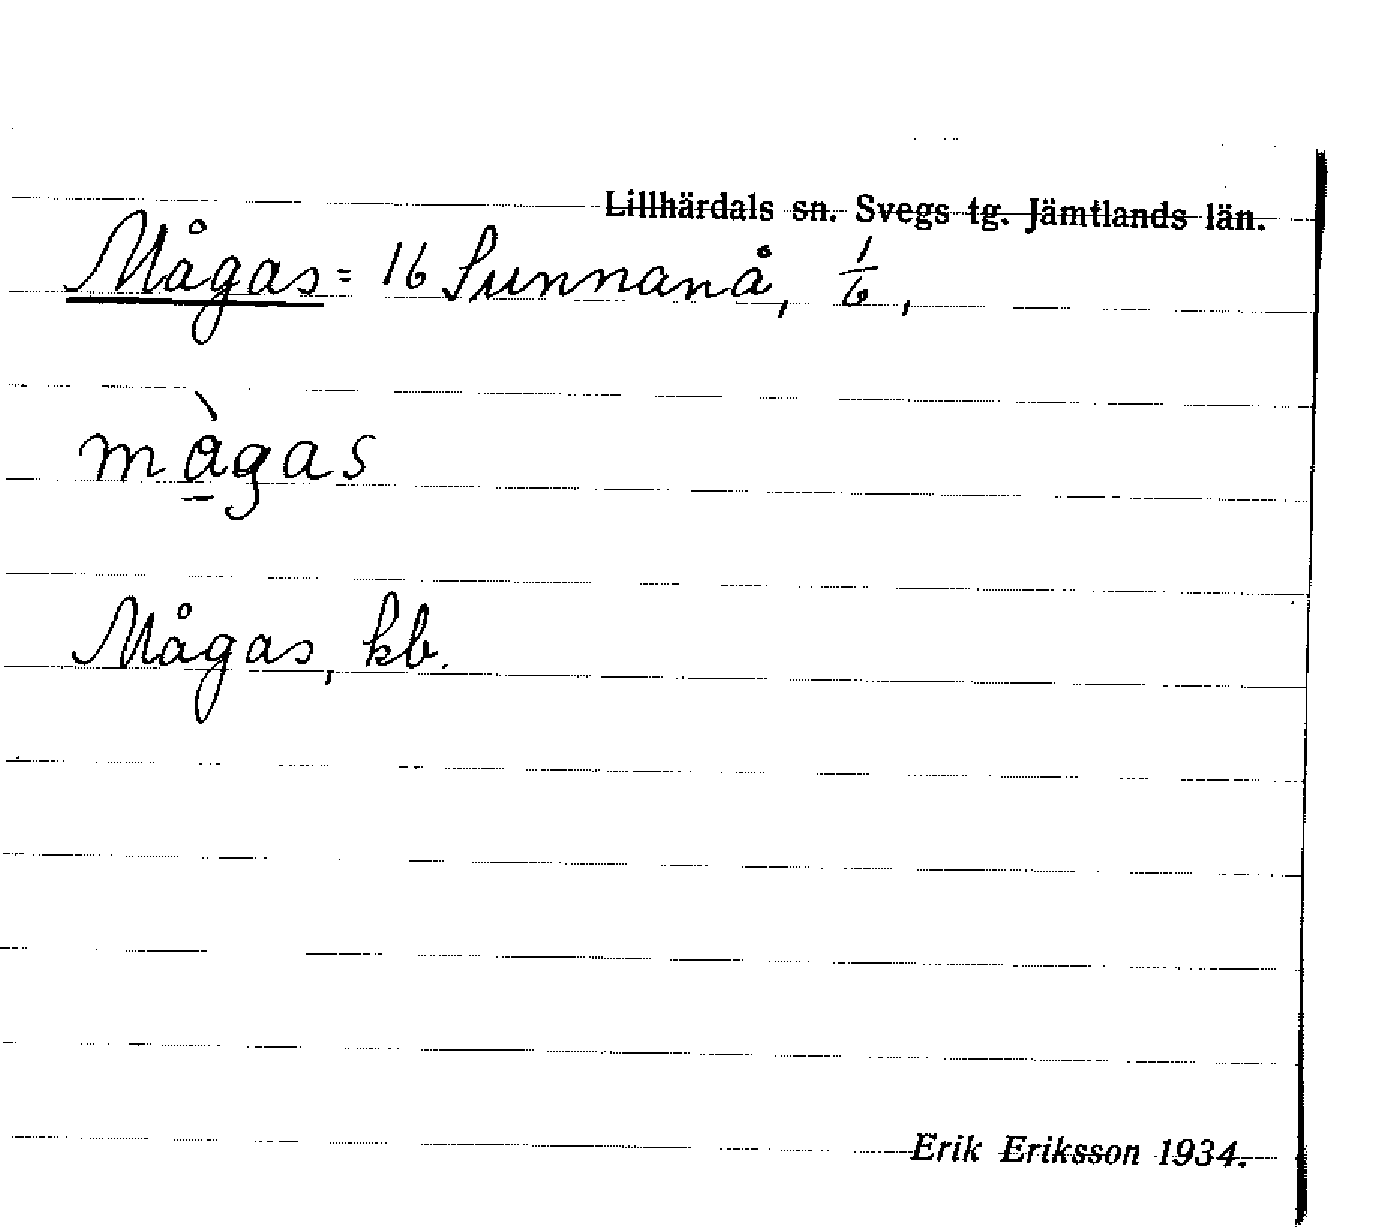 Lillhärdals sn. Svegs tg. Jämtlands län.
Mågas = 16 Sunnanå, 1/6,
mågas
Mågas, kb.
Erik Eriksson 1934.